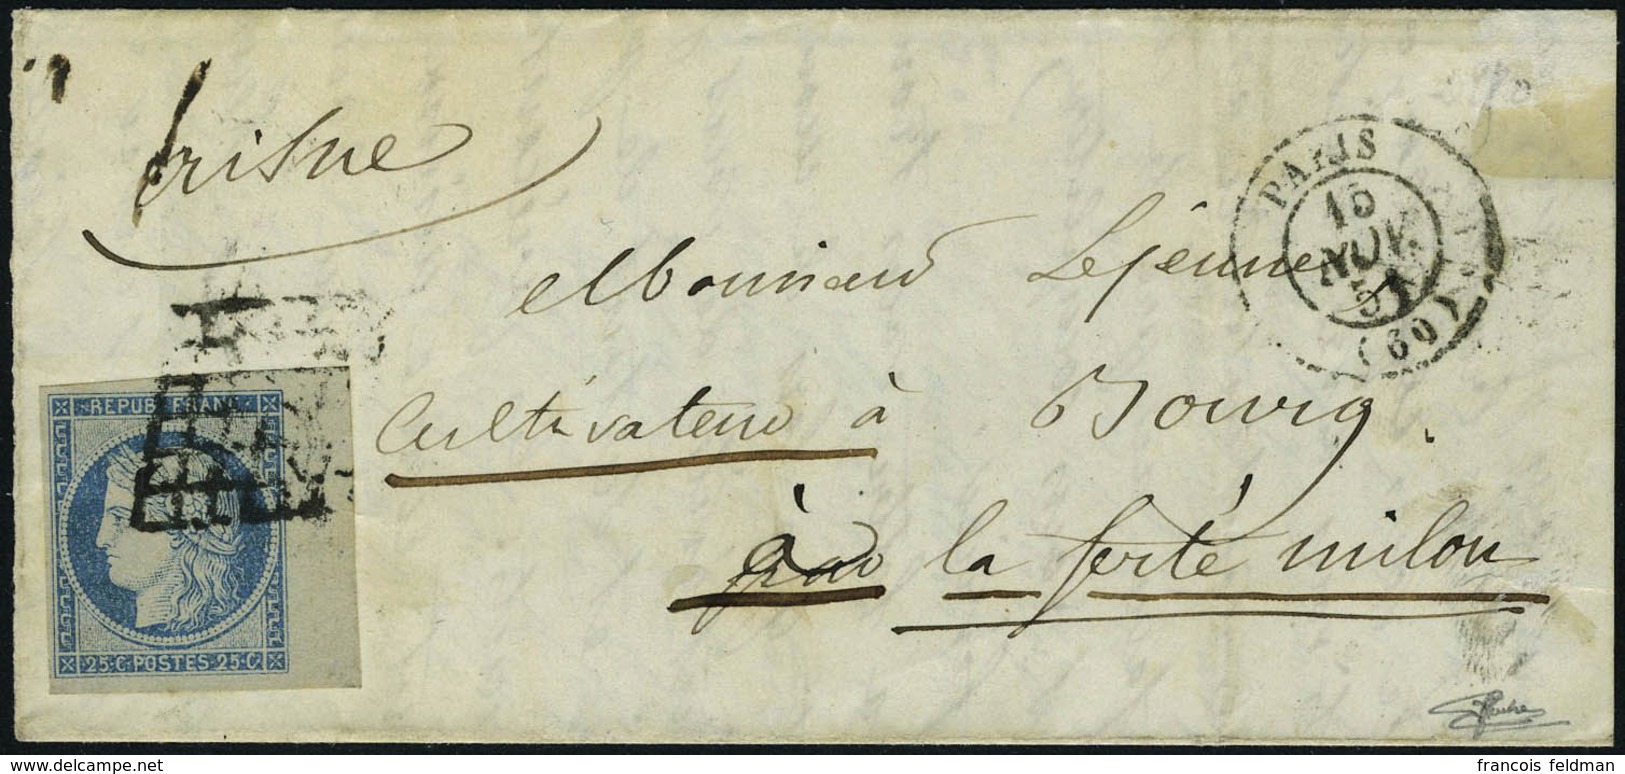 PARIS
15
NOV.
51
(60)
Monsieur Lejeune
Cultivateur à Bourg
à la ferté milon
REPUB. FRANC.
25.C. POSTES 25.C.
www.delcampe.net
francois feldman